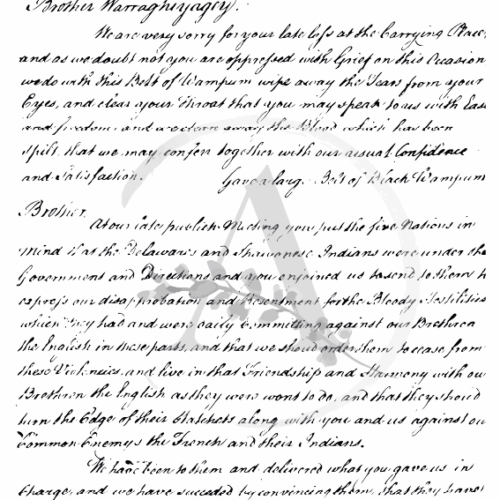 Brother Warraghiyagey.
We are very sorry for your late loss at the Carrying Place,
and as we doubt not you are oppressed with Grief on this Occasion
we do with this Belt of Wampum wipe away the Tears from your
Eyes, and clear your throat that you may speak to us with Ease
and freedom, and we clean away the Blood which has been
spilt, that we may confer together with our usual Confidence
and Satisfaction. Gave a large Belt of Black Wampum
Brother.
At our late publick Meeting you put the five Nations in
mind that the Delawares and Shawonese Indians were under the
Government and Directions and you enjoined us to send to them to
express our disapprobation and Resentment for the Bloody Hostilities
which they had and were daily Committing against our Brethren
the English in these parts, and that we should order them to cease from
these Violencies, and live in that Friendship and Harmony with our
Brethren the English as they were wont to do, and that they should
turn the Edge of their Hatchets along with you and us against our
Common Enemys the French and their Indians.
We have been to them and delivered what you gave us in
Charge, and we have succeeded by convincing them, that they have